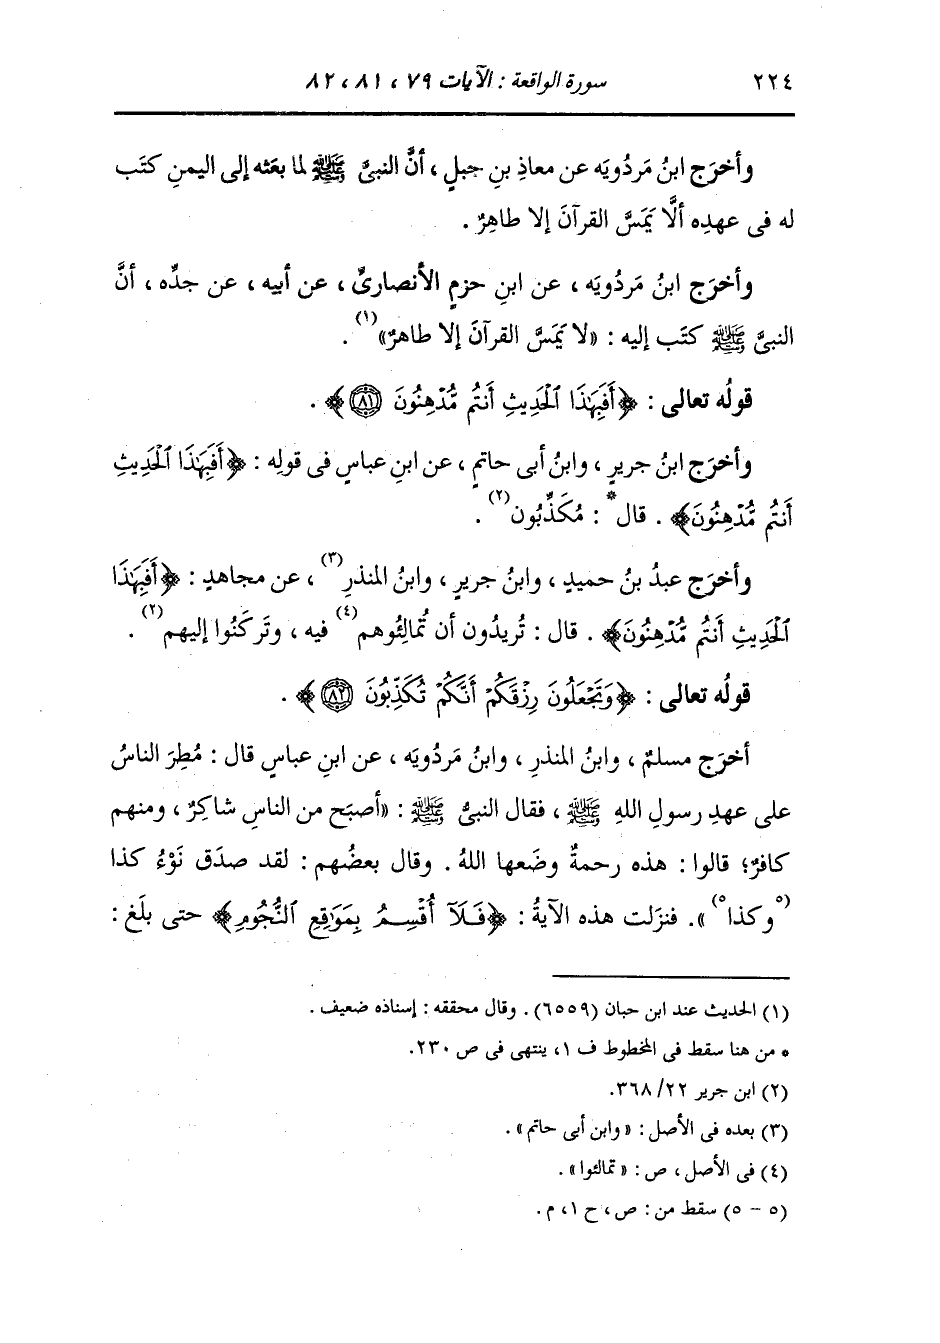 ٢٢٤ سورة الواقعة : الآيات ٧٩ ، ٨١ ، ٨٢
وأخرَج ابنُ مَردُويَه عن معاذِ بنِ جبلٍ ، أنَّ النبىَّ ﷺ لما بعَثه إلى اليمنِ كتَب
له فى عهدِه ألَّا يَمَسَّ القرآنَ إلا طاهِرٌ .
وأخرَج ابنُ مَردُويَه ، عن ابنِ حزمٍ الأنصارىِّ ، عن أبيه ، عن جدِّه ، أنَّ
النبىَّ ﷺ كتَب إليه : «لا يَمَسَّ القرآنَ إلا طاهرٌ»(١) .
قولُه تعالى : ﴿أَفَبِهَٰذَا ٱلْحَدِيثِ أَنتُم مُّدْهِنُونَ ۝٨١﴾ .
وأخرَج ابنُ جريرٍ ، وابنُ أبى حاتمٍ ، عن ابنِ عباسٍ فى قولِه : ﴿أَفَبِهَٰذَا ٱلْحَدِيثِ
أَنتُم مُّدْهِنُونَ﴾ . قال* : مُكَذِّبُون(٢) .
وأخرَج عبدُ بنُ حميدٍ ، وابنُ جريرٍ ، وابنُ المنذرِ(٣) ، عن مجاهدٍ : ﴿أَفَبِهَٰذَا
ٱلْحَدِيثِ أَنتُم مُّدْهِنُونَ﴾ . قال : تُريدُون أن تُمالِئُوهم(٤) فيه ، وتَركَنُوا إليهم(٢) .
قولُه تعالى : ﴿وَتَجْعَلُونَ رِزْقَكُمْ أَنَّكُمْ تُكَذِّبُونَ ۝٨٢﴾ .
أخرَج مسلمٌ ، وابنُ المنذرِ ، وابنُ مَردُويَه ، عن ابنِ عباسٍ قال : مُطِرَ الناسُ
على عهدِ رسولِ اللهِ ﷺ ، فقال النبىُّ ﷺ : «أصبَح من الناسِ شاكِرٌ ، ومنهم
كافرٌ؛ قالوا : هذه رحمةٌ وضَعها اللهُ . وقال بعضُهم : لقد صدَق نَوْءُ كذا
(٥وكذا٥)» . فنزَلت هذه الآيةُ : ﴿فَلَآ أُقْسِمُ بِمَوَٰقِعِ ٱلنُّجُومِ﴾ حتى بلَغ :
(١) الحديث عند ابن حبان (٦٥٥٩) . وقال محققه : إسناده ضعيف .
* من هنا سقط فى المخطوط ف ١، ينتهى فى ص ٢٣٠.
(٢) ابن جرير ٢٢/ ٣٦٨.
(٣) بعده فى الأصل : «وابن أبى حاتم» .
(٤) فى الأصل ، ص : «تمالئوا» .
(٥ - ٥) سقط من : ص، ح ١، م .